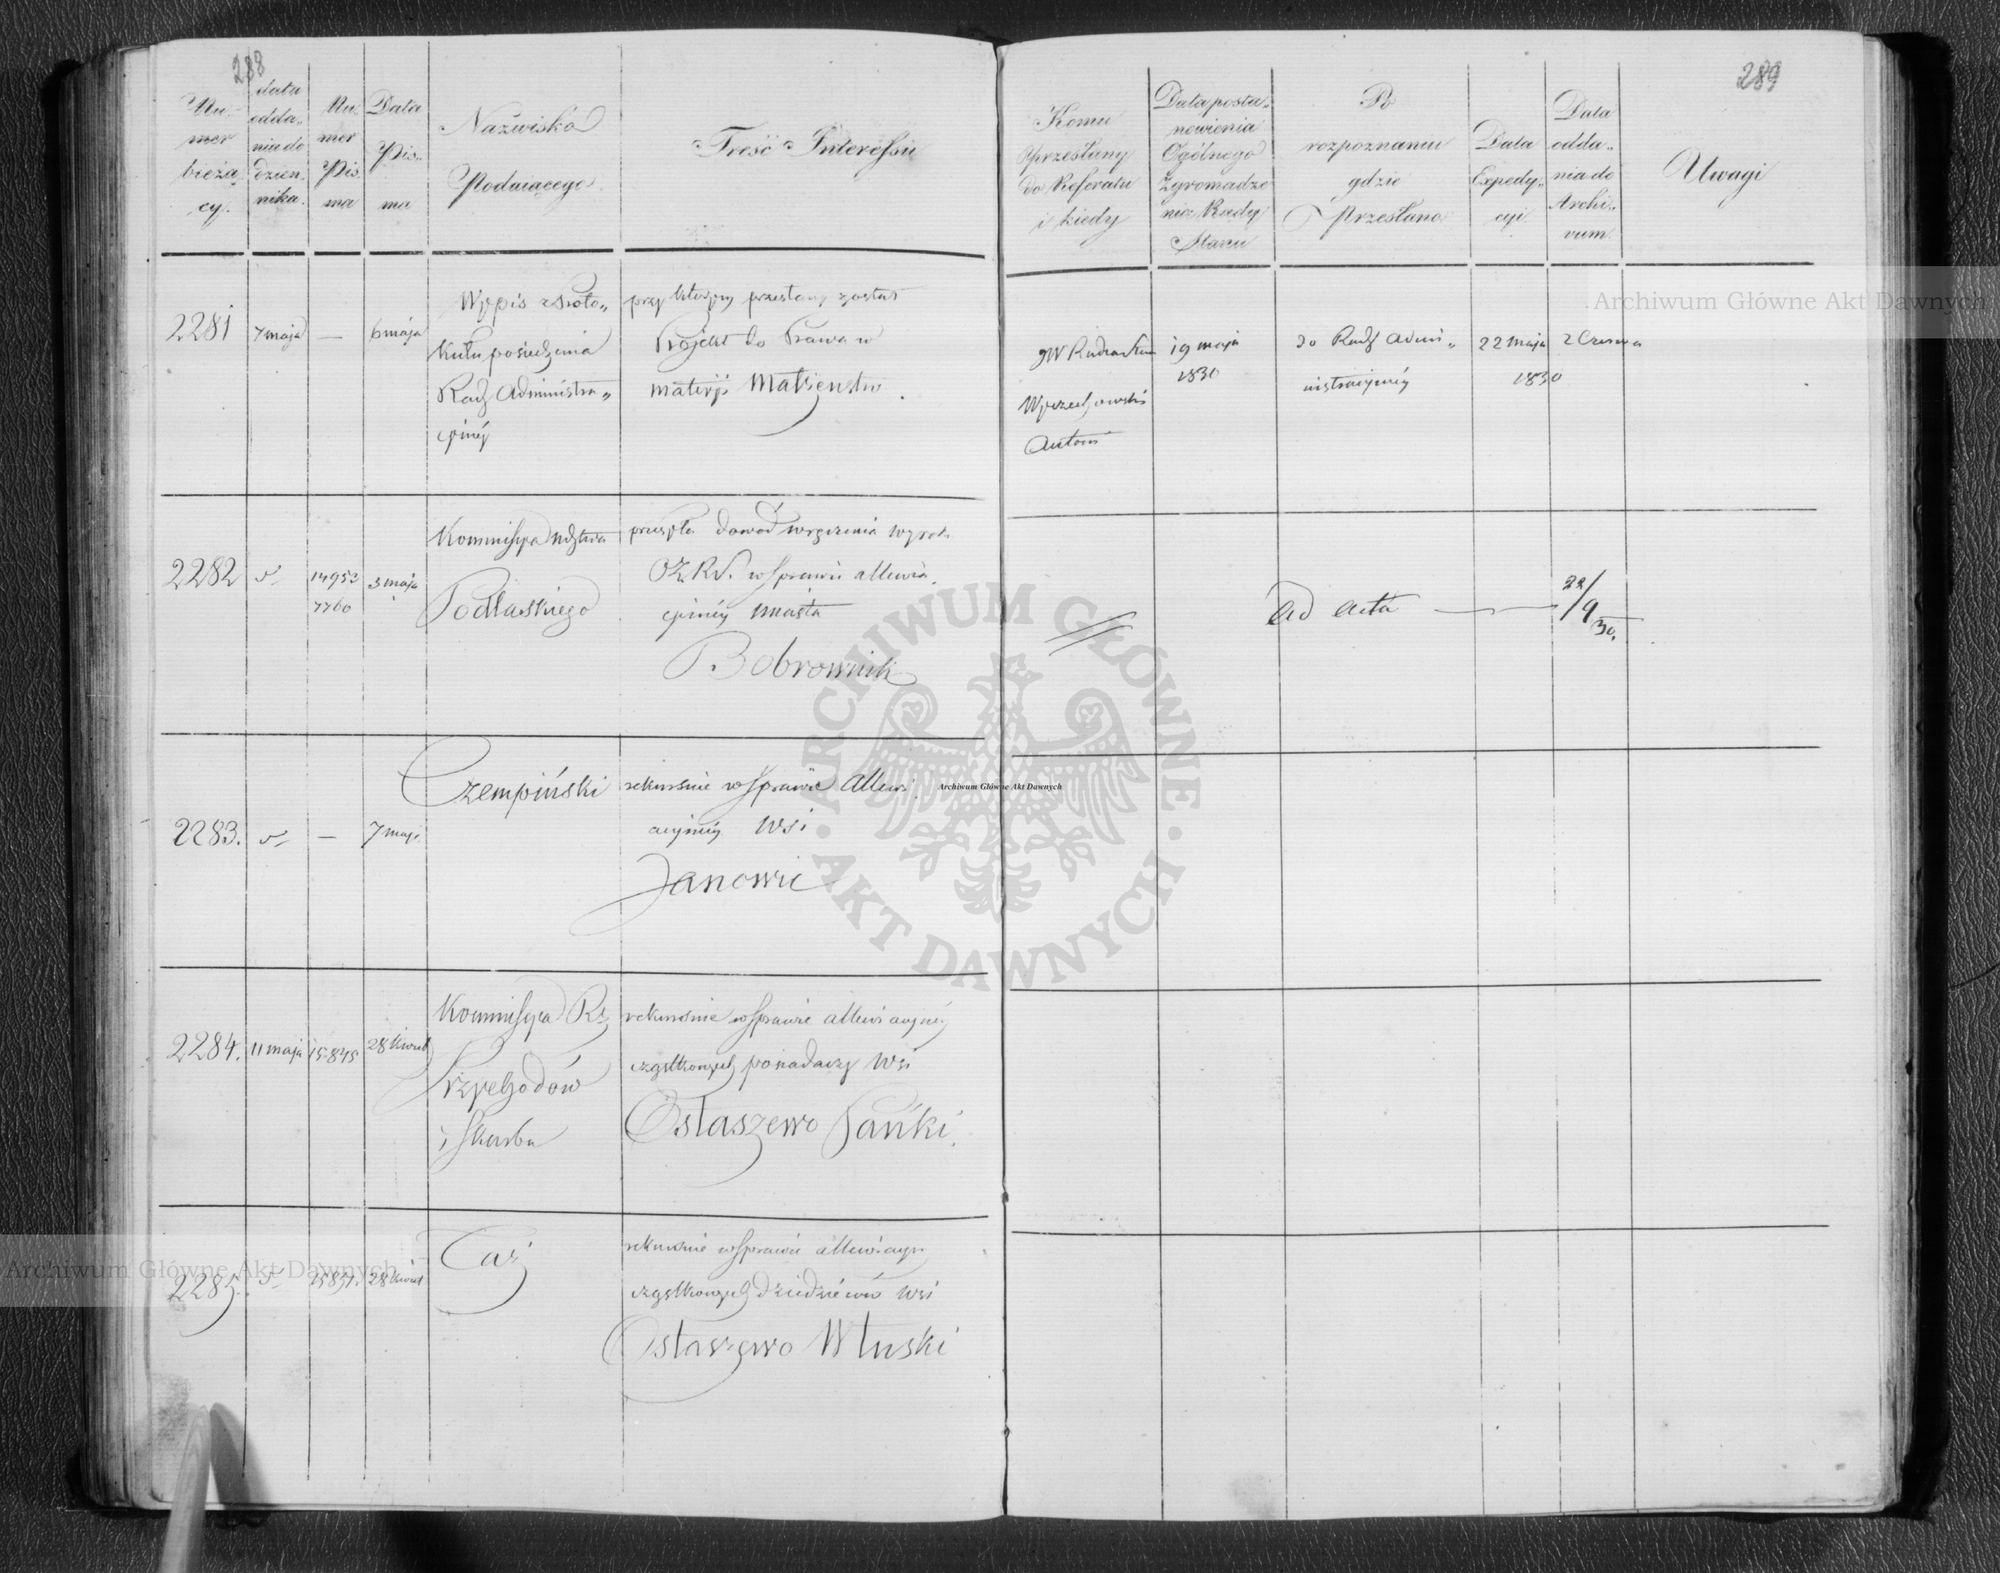 288
Nu-
mer
bieżą
cy.
data
odda-
nia do
dzien-
nika.
Nu-
mer
Pis
ma
Data
Pis-
ma
Nazwisko
Podaiącego
Treść Interessu
2281
7 maja
—
6 maja
Wypis z Proto-
kułu posiedzenia
Rady Administra-
cyinéy
przy którym przesłany został
Projekt do Prawa w
materyi Małżeństw.
2282
14952
7760
3 maja
Kommissya Wdztwa
Podlaskiego
przesyła dowód wręczenia wyrok
w Sprawie allewia
cyinéy miasta
Bobrownik
2283.
—
7 maja
Czempiński
rekursuie w Sprawie Allewi
acyinéy Wsi
Janowic
2284.
11 maja
15845
28 Kwiet
Kommissya Rz
Przychodów
i Skarbu
rekursuie w Sprawie allewiacyinéy
cząstkowych posiadaczy Wsi
Ostaszewo Pańki.
2285.
28 Kwiet
Taż
rekursuie w Sprawie allewiacyi
cząstkowych dziedziców Wsi
Ostaszewo Włuski
289
Komu
przesłany
do Referatu
i kiedy
Data posta-
nowienia
Ogólnego
Zgromadze
nia Rady
Stanu
Po
rozpoznaniu
gdzie
przesłano
Data
Expedy-
cyi
Data
odda-
nia do
Archi-
vum
Uwagi
JW Radca Stanu
Wyczechowski
Antoni
19 maja
1830
do Rady Admi-
nistracyinéy
22 maja
1830
2 Czerwca
Ad acta
22/9
30.
Archiwum Główne Akt Dawnych
Archiwum Główne Akt Dawnych
Archiwum Główne Akt Dawnych
ARCHIWUM GŁÓWNE
AKT DAWNYCH